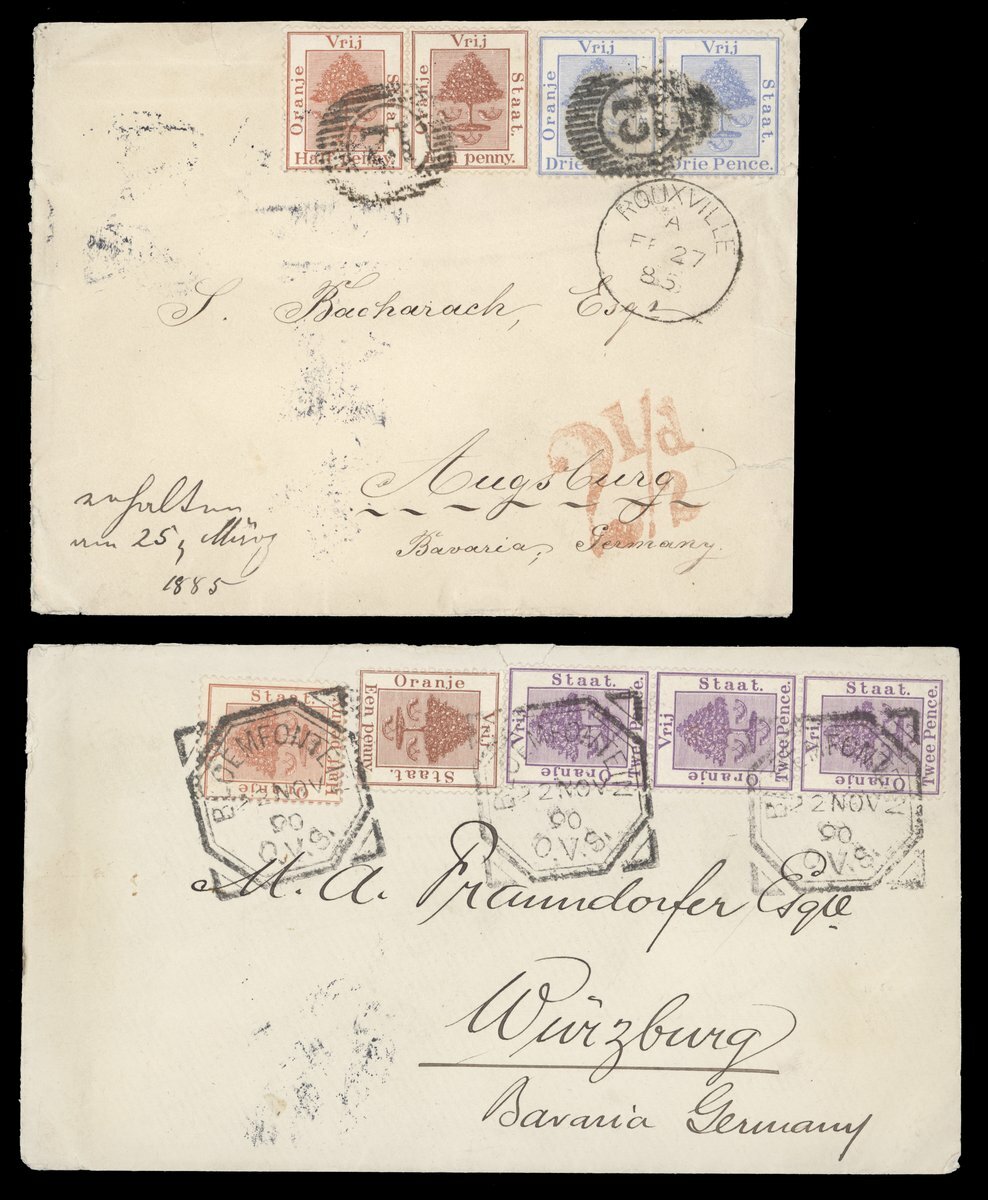 Vrij
Oranje
Staat.
Half Penny.
Vrij
Oranje
Staat.
Een penny.
Vrij
Oranje
Drie
Vrij
Staat.
Drie Pence.
ROUXVILLE
A
27
85
S. Bacharach, Esqr
2 1/2 d
Augsburg
Bavaria, Germany.
erhalten
am 25, März
1885
Staat.
Half
Oranje
Oranje
Een penny
Vrij
Staat.
Staat.
Vrij
Twee Pence.
Oranje
Staat.
Vrij
Twee Pence.
Oranje
Staat.
Vrij
Twee Pence.
Oranje
BLOEMFONTEIN
2 NOV
90
O.V.S.
BLOEMFONTEIN
2 NOV
90
O.V.S.
BLOEMFONTEIN
2 NOV
90
O.V.S.
M. A. Fraundorfer Esqre
Würzburg
Bavaria Germany